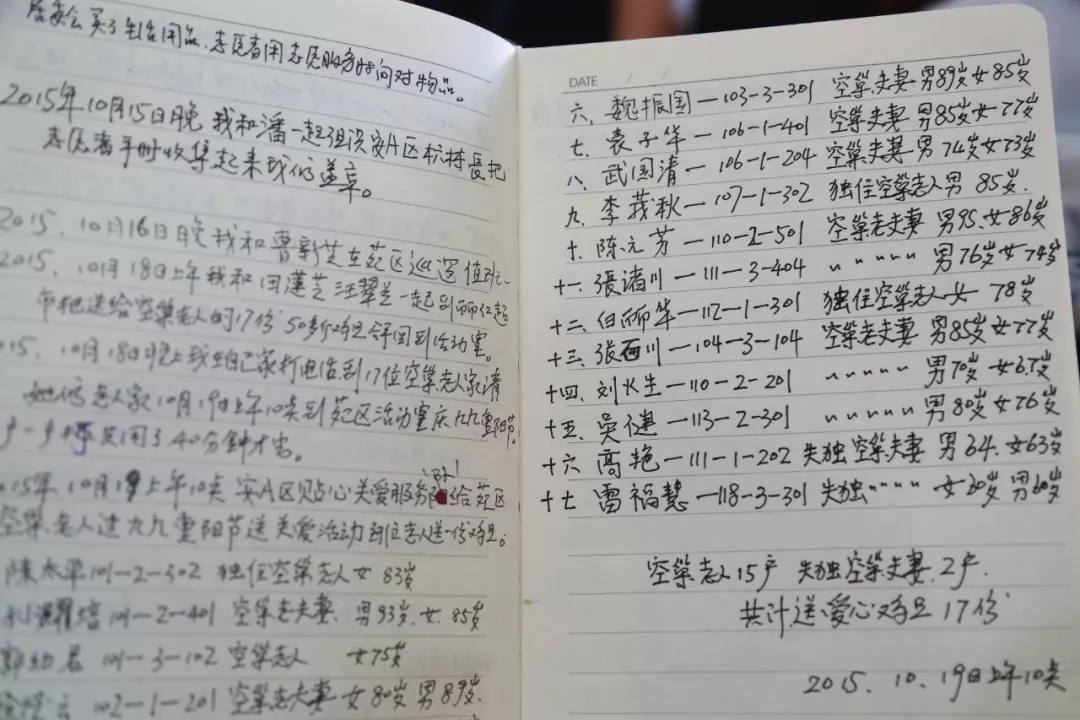 居委会买了生活用品.志愿者用志愿服务时间对物品。
2015年10月15日晚 我和潘一起 安A区 栋长把
志愿者平时收集起来 我们盖章。
2015.10月16日晚我和曹新芝在苑区巡逻值班.
2015.10月18日上午我和田莲芝汪翠兰一起到 超
市把送给空巢老人的17份50多个鸡旦 回到活动室。
015.10月18日晚上我在自己家打电话到17位空巢老人家请
她们老人家10月19日上午10点到苑区活动室庆九九重阳节。
户一户 足用了40分钟才 。
015年10月19上午10点 安A区贴心关爱服务 给苑区
空巢老人过九九重阳节送关爱活动 每位老人送一份鸡旦。
陈太平101-2-302 独住空巢老人 女 83岁
101-2-401 空巢老夫妻. 男93岁.女.85岁
101-3-102 空巢老人 女75岁
102-1-201 空巢老夫妻 女80岁 男89岁.
DATE / /
六、魏振国—103-3-301 空巢夫妻-男89岁女85岁
七、袁子华—106-1-401 空巢夫妻-男85岁女77岁
八、武国清—106-1-204 空巢夫妻-男74岁女73岁
九、李莪秋—107-1-302 独住空巢老人男 85岁.
十、陈元芳—110-2-501 空巢老夫妻 男95.女86岁
十一、張诸川—111-3-404 〃〃〃〃〃 男76岁女74岁
十二、伯丽华—112-1-301 独住空巢老人-女 78岁
十三、張石川—104-3-104 空巢老夫妻 男85岁女77岁
十四.刘火生—110-2-201 〃〃〃〃〃 男70岁 女67岁
十五、吴健—113-2-301 〃〃〃〃〃 男80岁女76岁
十六 高艳—111-1-202 失独空巢夫妻 男64.女63岁
十七 雷福慧—118-3-301 失独〃〃〃〃 女60岁 男60岁
空巢老人15户 失独空巢夫妻.2户.
共计送爱心鸡旦 17份
2015.10.19日上午10点